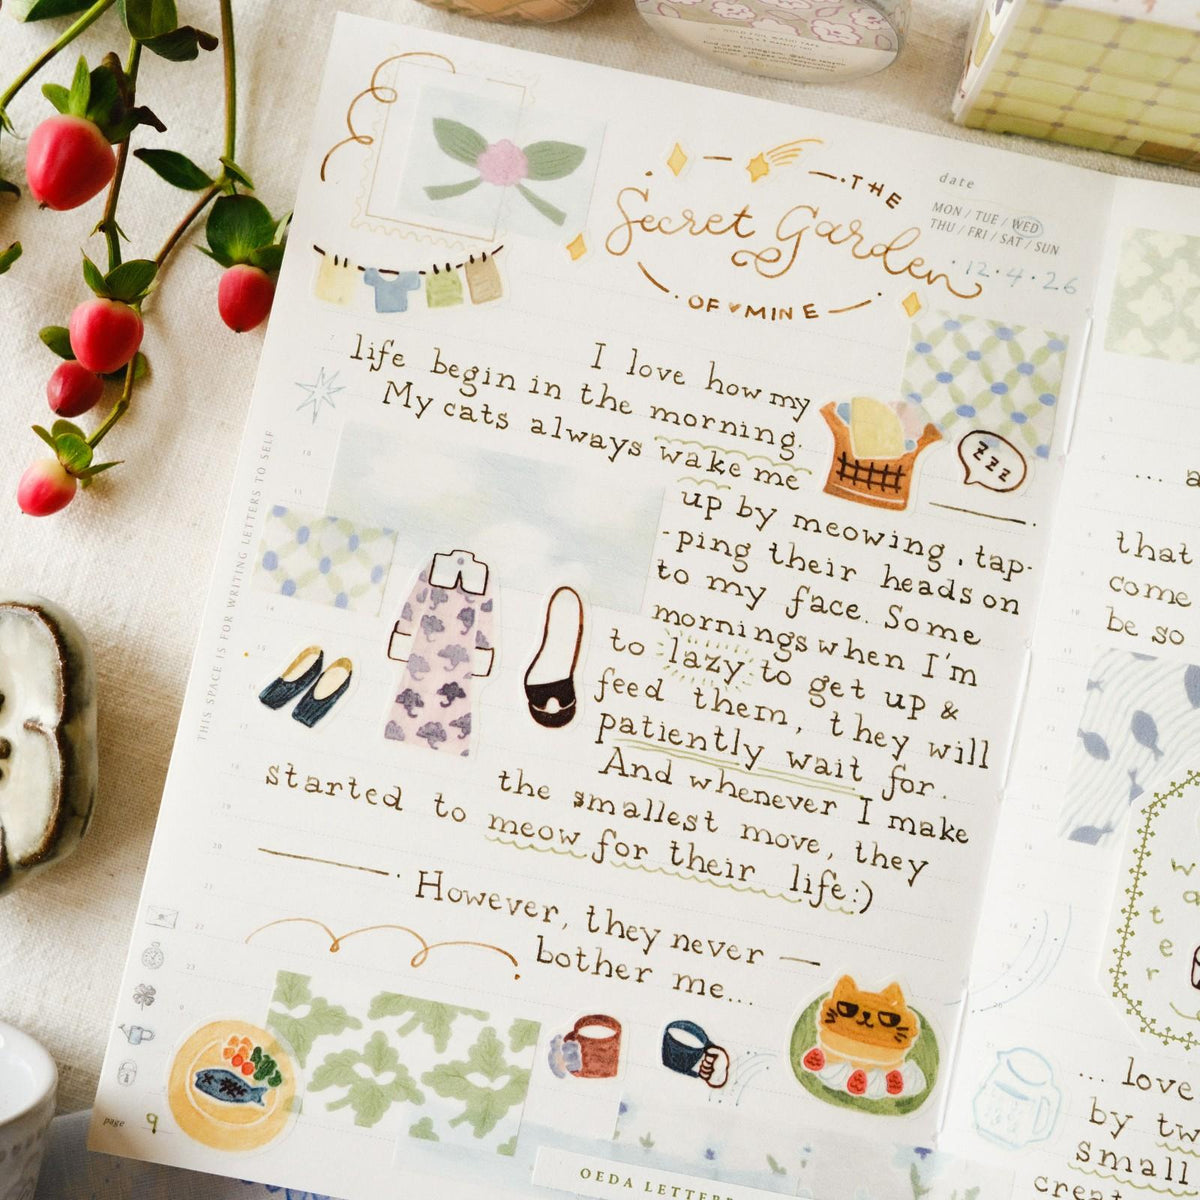 THE
Secret Garden
OF ♥ MINE
date
MON / TUE / WED
THU / FRI / SAT / SUN
·12·4·26
I love how my
life begin in the morning.
My cats always wake me
up by meowing, tap-
-ping their heads on
to my face. Some
mornings when I'm
to lazy to get up &
feed them, they will
patiently wait for.
And whenever I make
the smallest move, they
started to meow for their life:)
However, they never —
bother me...
zzz
THIS SPACE IS FOR WRITING LETTERS TO SELF
page 9
OEDA LETTER
... a
that
come
be so
water
... love
by tw
small
creat